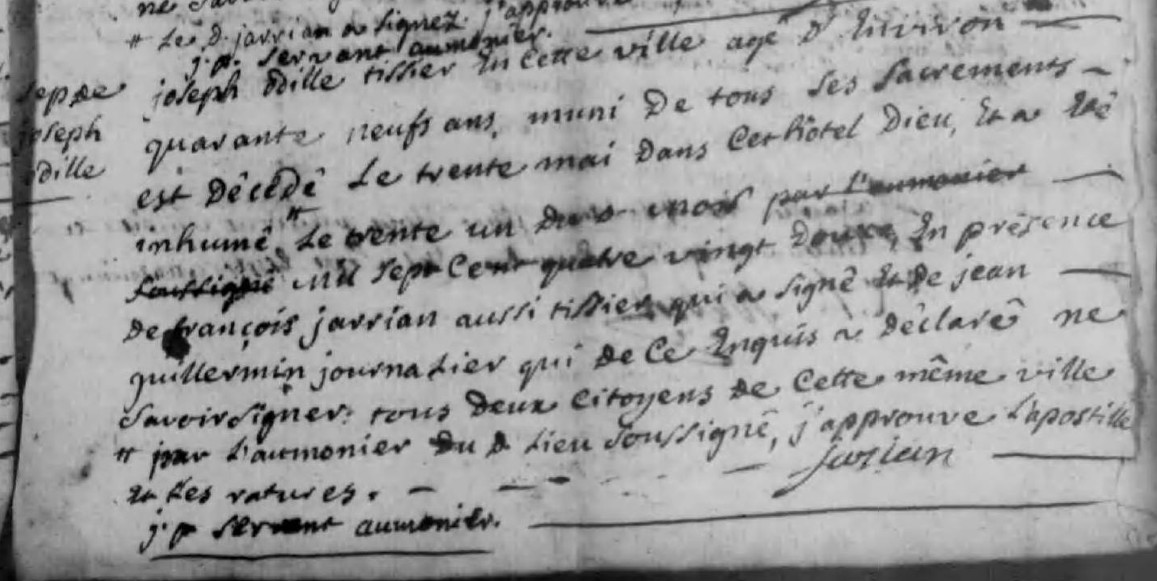 # Le d. jarrian a Signez. j'approuve
j. p. Servant aumonier.
sep de
joseph
odille
joseph Odille tissier En Cette ville agé d'Environ
quarante neufs ans, muni De tous Ses Sacrements
est Décedê Le trente mai Dans Cet hôtel Dieu, Et a Etê
inhumê # Le trente un Du d. mois par l'aumonier
Soussignê Mil Sept Cent quatre vingt Douze, En présence
De françois jarrian aussi tissier qui a Signê Et De jean
guillermin journalier qui De Ce Enquis a Déclarê ne
Savoir Signer: tous Deux Citoyens De Cette même ville
# par L'aumonier Du d. Lieu Soussignê, j'approuve L'apostille
Et Les ratures.
Jarian
j. p Servant aumonier.